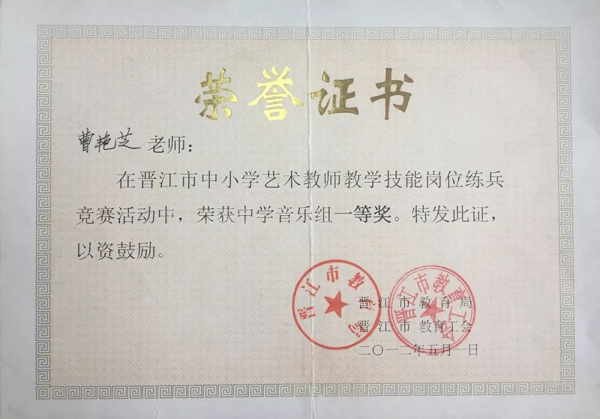 荣誉证书
曹艳芝 老师：
在晋江市中小学艺术教师教学技能岗位练兵
竞赛活动中，荣获中学音乐组一等奖。特发此证，
以资鼓励。
晋江市教育局
晋江市教育工会
二〇一二年五月一日
晋江市教育局
晋江市教育工会